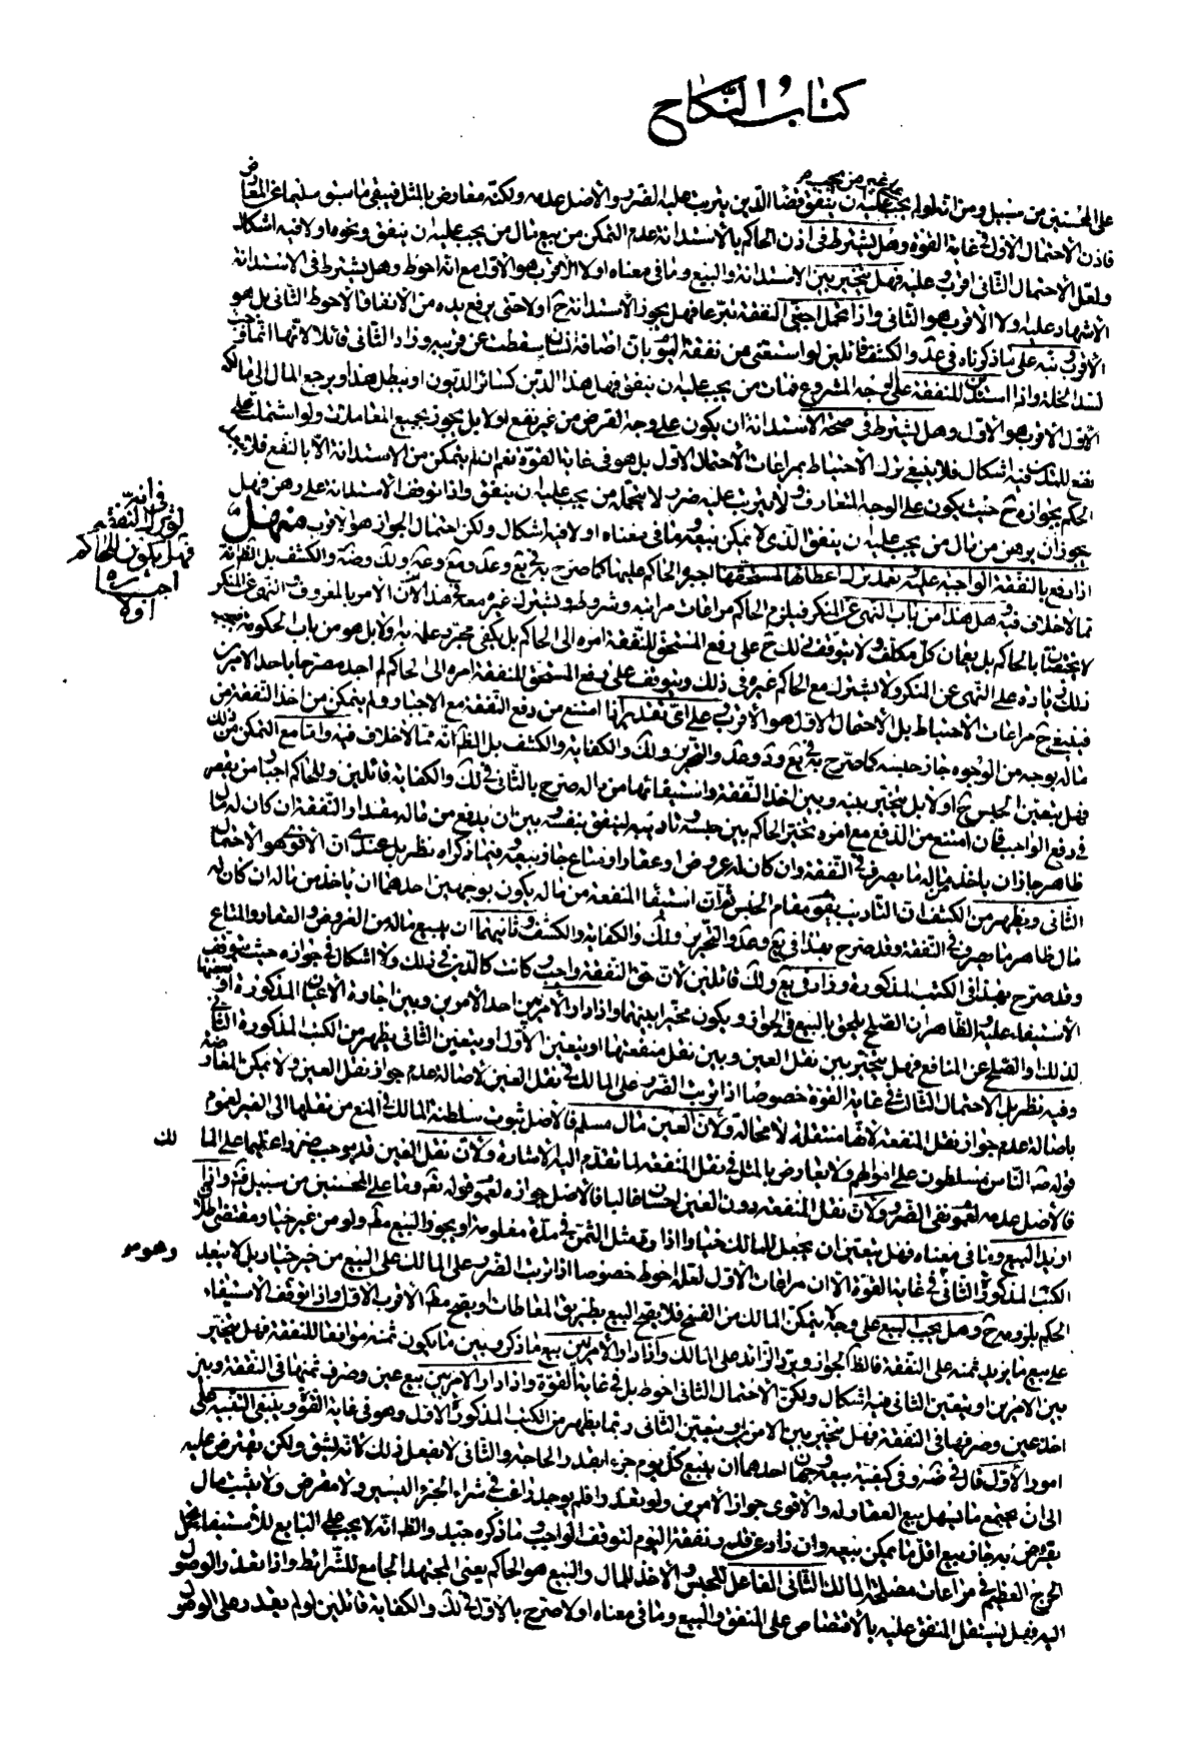 كتاب النكاح
على المحسنين من سبيل ومن انه لو لم يجب عليه ان ينفق فضا الدين يترتب عليه الضرر والأصل عدمه ولكنه معارض بالمثل فيبقى ما سبق سليما عن المعارض
فاذن الاحتمال الأول في غاية القوة وهل يشترط في اذن الحاكم بالاستدانة عدم التمكن من بيع مال من يجب عليه ان ينفق ونحوه اولا فيه اشكال
ولعل الاحتمال الثاني اقرب وعليه فهل يتخير بين الاستدانة والبيع وما في معناه اولا الأقرب هو الأول مع انه احوط وهل يشترط في الاستدانة
الاشهاد عليه اولا الأقرب هو الثاني واذا تحمل اجنبي النفقة تبرعا فهل يجوز الاستدانة ح اولا حتى يرفع يده من الانفاق الأحوط الثاني بل هو
الأقرب ونبه على ما ذكرناه في عد والكشف قائلين لو استغنى من نفقة اليوم بان اضافه انسان سقطت عن قريبه وزاد الثاني قائلا لأنها انما وجب
لسد الخلة واذا استدان للنفقة على الوجه المشروع فمات من يجب عليه ان ينفق فهل هذا الدين كسائر الديون او يبطل هذا ويرجع المال الى مالكه
الأول الأقرب هو الأول وهل يشترط في صحة الاستدانة ان يكون على وجه القرض من غير نفع اولا بل يجوز بجميع المعاملات ولو اشتملت على
نفع للمدين فيه اشكال فلا ينبغي ترك الاحتياط بمراعات الاحتمال الأول بل هو في غاية القوة نعم ان لم يتمكن من الاستدانة الا بالنفع فلا يبعد
الحكم بجوازه ح حيث يكون على الوجه المتعارف ولا يترتب عليه ضرر لا يتحمله من يجب عليه ان ينفق واذا توقف الاستدانة على رهن فهل
يجوز ان يرهن من مال من يجب عليه ان ينفق الذى لا يمكن بيعه وما في معناه اولا فيه اشكال ولكن احتمال الجواز هو الأقرب منهل
اذا دفع بالنفقة الواجبة عليه بعد ترك اعطائها لمستحقها اجبره الحاكم عليها كما صرح به في يع وعد ومع وغيه ولك وضه والكشف بل الظ انه
مما لا خلاف فيه وهل هذا من باب النهى عن المنكر فيلزم الحاكم مراعات مراتبه وشروطه ويشترك غيره معه في هذا لأن الامر بالمعروف والنهى عن المنكر
لا يختصان بالحاكم بل يعمان كل مكلف ولا يتوقف ذلك ح على رفع المستحق للنفقة امره الى الحاكم بل يكفى مجرد علمه به اولا بل هو من باب الحكومة فيجب
ذلك زيادة على النهى عن المنكر ولا يشترك مع الحاكم غيره في ذلك ويتوقف على رفع المستحق للنفقة امره الى الحاكم لم اجد مصرحا باحد الأمرين
فينبغى ح مراعات الاحتياط بل الاحتمال الأول هو الأقرب وعلى اى تقدير انما امتنع من دفع النفقة مع الاجبار ولم يتمكن من اخذ النفقة من
ماله بوجه من الوجوه جاز حبسه كما صرح به في يع ود وعد والتحرير ولك والكفاية والكشف بل الظ انه مما لا خلاف فيه واما مع التمكن من ذلك
فهل يتعين الحبس ح اولا بل يتخير بينه وبين اخذ النفقة واستيفائها من ماله صرح بالثاني في لك والكفاية قائلين وللحاكم اجبار من يقصر
في دفع الواجب فان امتنع من الدفع مع امره تخير الحاكم بين حبسه وتاديبه لينفق بنفسه وبين ان يدفع من ماله مقدار النفقة ان كان له مال
ظاهر جاز ان ياخذ من ماله ما يصرف في النفقة وان كان له عروض او عقار او متاع جاز بيعه وفيما ذكراه نظر بل عندى ان الأقوى هو الاحتمال
الثاني ويظهر من الكشف ان التاديب يقوم مقام الحبس ثم ان استيفاء النفقة من ماله يكون بوجهين احدهما ان ياخذ من ماله ان كان له
مال ظاهر ما يصرف في النفقة وقد صرح بهذا في يع وعد والتحرير ولك والكفاية والكشف وثانيهما ان يبيع ماله من العروض والعقار والمتاع
وقد صرح بهذا في الكتب المذكورة وزاد في يع ولك قائلين لأن حق النفقة واجب وكانت كالدين في ذلك ولا اشكال في جوازه حيث يتوقف
الاستيفاء عليه والظاهر ان الصلح يلحق بالبيع في الجواز ويكون مخيرا بينهما واذا دار الأمر بين احد الأمرين وبين اجارة الأعيان المذكورة او بعضها
لذلك او الصلح عن المنافع فهل يتخير بين نقل العين وبين نقل منفعتها او يتعين الأول او يتعين الثاني يظهر من الكتب المذكورة الثاني
وفيه نظر بل الاحتمال الثالث في غاية القوة خصوصا اذا ترتب الضرر على المالك في نقل العين لأصالة عدم جواز نقل العين ولا يمكن المعارضة
باصالة عدم جواز نقل المنفعة لأنها منتقلة لا محالة ولأن العين مال مسلم فالأصل ثبوت سلطنة المالك في المنع من نقلها الى الغير لعموم
قوله ص الناس مسلطون على اموالهم ولا يعارض بالمثل في نقل المنفعة لما تقدم اليه الاشارة ولأن نقل العين قد يوجب ضررا عظيما على المالك
فالأصل عدمه لعموم نفى الضرر ولأن نقل المنفعة دون العين احسان غالبا فالأصل جوازه لعموم قوله تعم وما على المحسنين من سبيل فتم واذا
اريد البيع وما في معناه فهل يتعين ان يجعل للمالك خيارا اذا رد مثل الثمن في مدة معلومة او يجوز البيع مطلقا ولو من غير خيار مقتضى اطلاق
الكتب المذكورة الثاني في غاية القوة الا ان مراعات الأول لعله احوط خصوصا اذا ترتب الضرر على المالك على البيع من غير خيار بل لا يبعد
الحكم بلزومه ح وهل يجب البيع على وجه لا يتمكن المالك من الفسخ فلا يصح البيع بطريق المعاطات او يصح مطلقا الأقرب الأول واذا توقف الاستيفاء
على بيع ما يزيد ثمنه على النفقة فالظ الجواز ويرد الزائد على المالك واذا دار الأمر بين بيع ما ذكر وبين ما يكون ثمنه موافقا للنفقة فهل يتخير
بين الأمرين او يتعين الثاني فيه اشكال ولكن الاحتمال الثاني احوط بل في غاية القوة واذا دار الأمر بين بيع عين وصرف ثمنها في النفقة وبين
اخذ عين وصرفها في النفقة فهل يتخير بين الأمرين او يتعين الثاني ربما يظهر من الكتب المذكورة الأول وهو في غاية القوة وينبغى التنبيه على
امور الأول قال في ضه وفى كيفية بيعه وجهان احدهما ان يبيع كل يوم جزء بقدر الحاجة والثاني لا يفعل ذلك لأنه يشق ولكن يقترض عليه
الى ان يجتمع ما يسهل بيع العقار له والأقوى جواز الأمرين ولو تعذرا فلم يوجد راغب في شراء الجزء اليسير ولا مقرض ولا بيت مال
يقترض به جاز بيع اقل ما يمكن بيعه وان زاد عن قدر نفقة اليوم لتوقف الواجب وما ذكره جيد والظ انه لا يجب على البايع للاستيفاء تحمل
الحرج العظيم في مراعات مصلحة المالك الثاني الفاعل للحبس والأخذ للمال والبيع هو الحاكم يعنى المجتهد الجامع للشرائط واذا تعذر الوصول
اليه فهل يستقل المنفق عليه بالاقتصاص على المنفق والبيع وما في معناه اولا صرح بالأول في لك والكفاية قائلين لو لم يقدر على الوصول
فرانه
لو ترك النفقه
فهل يكون للحاكم
اجباره
اولا
وهو مو